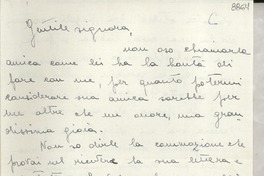 8864
Gentile signora,
non oso chiamarla
amica come lei ha la bontà di
fare con me, per quanto potermi
considerare sua amica sarebbe per
me oltre che un onore, una gran
dissima gioia.
Non so dirle la commozione che
provai nel ricevere la sua lettera e